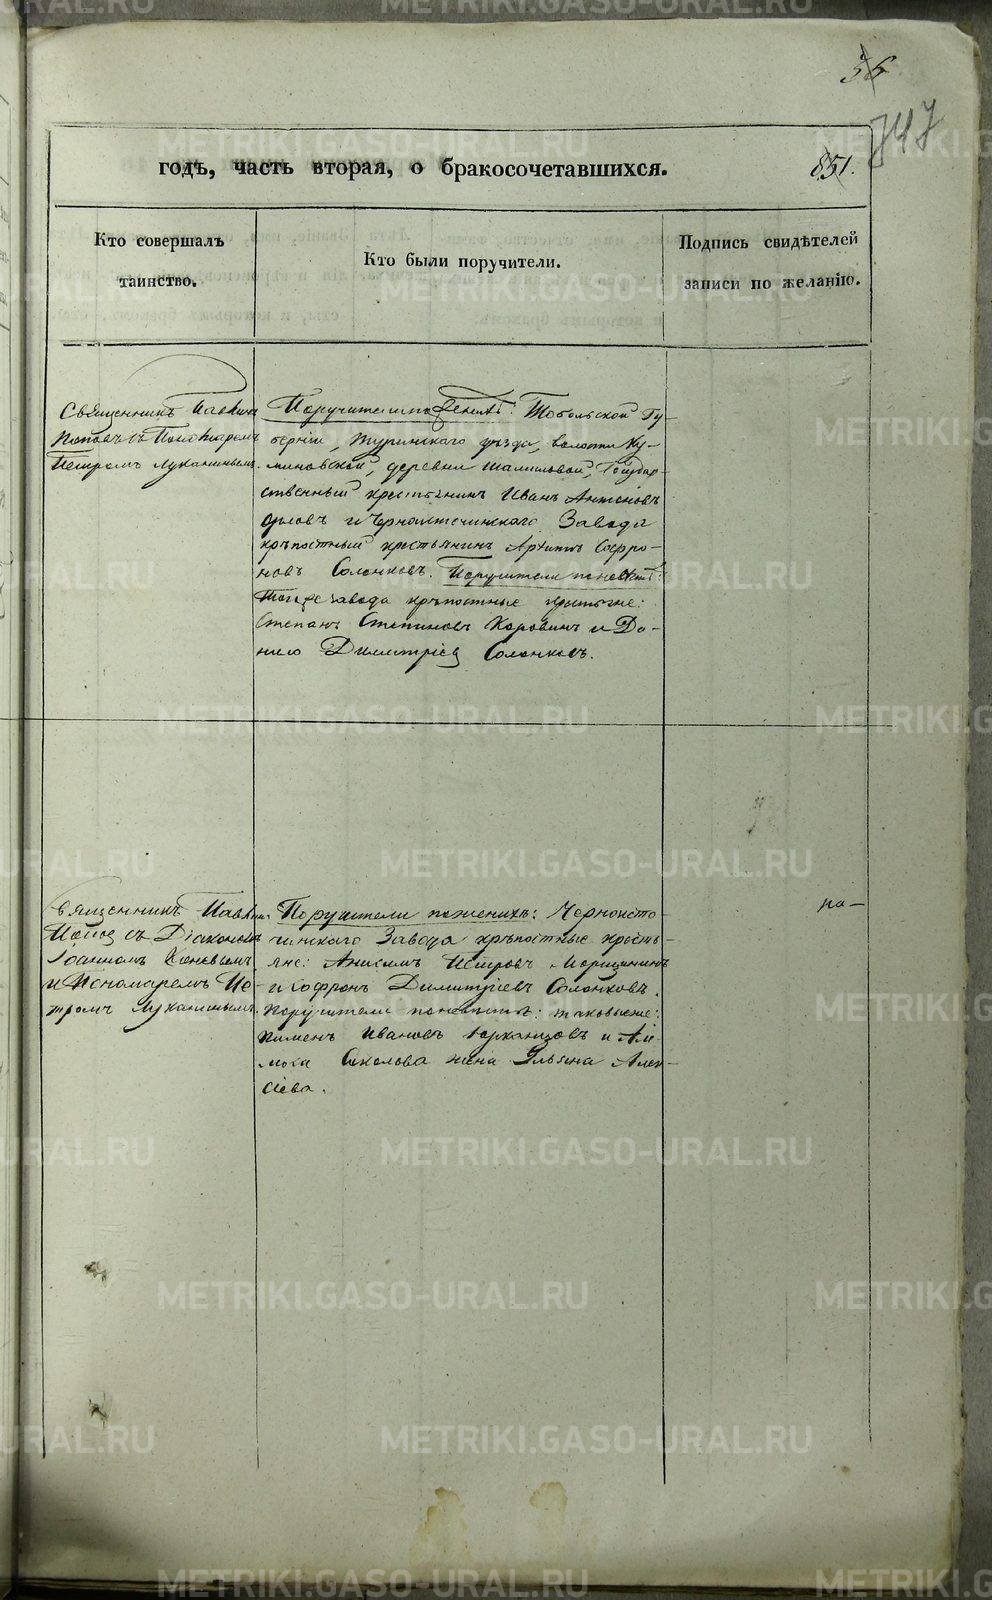 METRIKI.GASO-URAL.RU
36
747
годъ, часть вторая, о бракосочетавшихся.
851.
Кто совершалъ
таинство.
Кто были поручители.
Подпись свидѣтелей
записи по желанію.
Священникъ
Поповъ съ Пономаремъ
Петромъ Луканинымъ.
Поручители по женихѣ: Тобольской Гу-
берніи, Туринскаго уѣзда, волости Ку-
миновской, деревни Шамиловой, Государ-
ственный крестьянинъ Иванъ Антоновъ
Орловъ и Черноисточинскаго Завода
крѣпостный крестьянинъ Архипъ Софро-
новъ Солонковъ. Поручители по невѣстѣ:
Тогоже завода крѣпостные крестьяне:
Степанъ Степановъ Коровинъ и Да-
нило Димитріев Солонковъ.
Священникъ
Попов съ Діакономъ
Іоанномъ
и Пономаремъ Пе-
тромъ Луканинымъ.
Поручители по женихѣ: Черноисто-
чинскаго Завода крѣпостные крестья-
яне: Анисимъ Петровъ
и Софронъ Димитріевъ Солонковъ.
Поручители по невѣстѣ: таковыеже:
Пименъ Ивановъ и
Соколова жена Ульяна Алек-
сіева.
по—